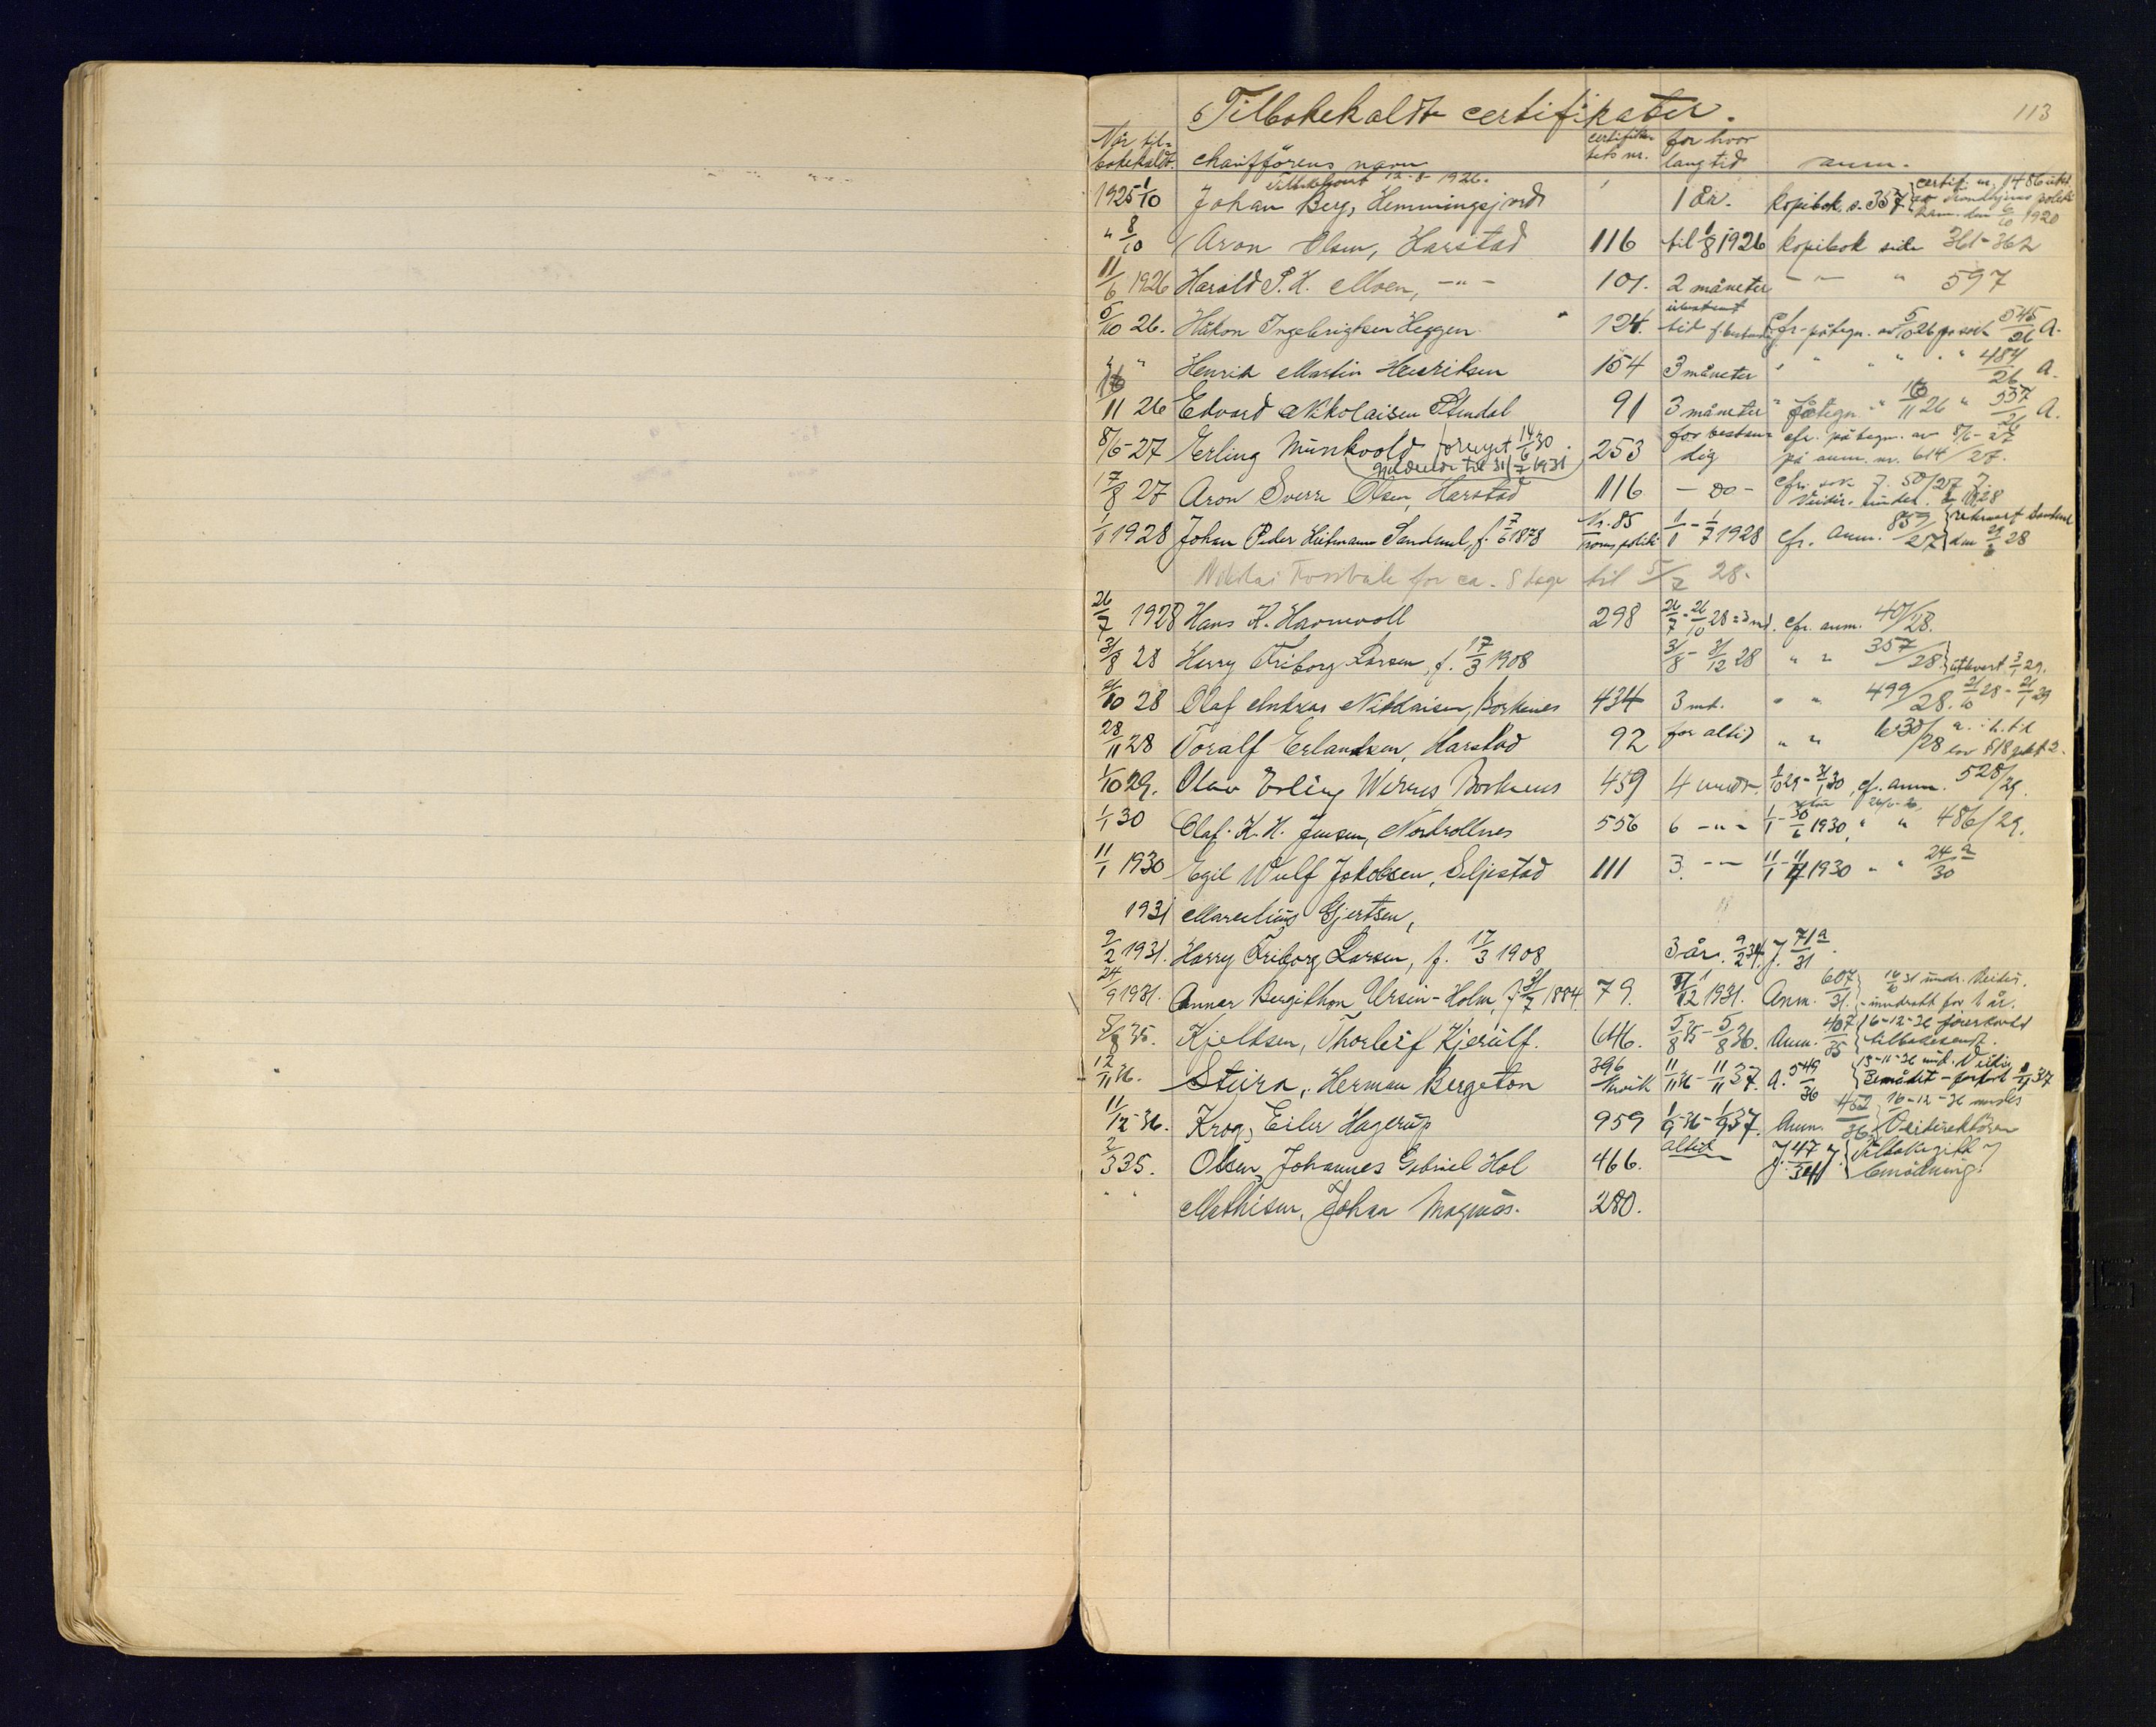 113
Tilbakekaldte certifikater.
Når til-bakekaldt. chaufførens navn certifika-tets nr. for hvor lang tid anm.
Tilbakelevert 12-8-1926.
1925 1/10 Johan Berg, Hemmingsjord 1 år. kopibok s. 357 {certif. nr. 1486 utst. av Trondhjems politi-kam. den 6/10 1920
" 8/10 Aron Olsen, Harstad 116 til 1/8 1926 kopibok side 361-362
11/6 1926 Harald P. H. Moen, -"- 101. 2 måneter -"- " 597
5/10 26. Håkon Ingebrigtsen Heggen 124. ubestemt tid cfr. påtegn. av 5/10 26 på sak 545/26 A.
" " Henrik Martin Henriksen 154 3 måneter " " " " " 484/26 A.
16/11 26 Edvard Nikolaisen Stendal 91 3 måneter " påtegn. " 16/11 26 " 557/26 A.
8/6-27 Erling Munkvold fornyet 14/6 30. gjeldende til 31/7 1931 253 for bestan-dig cfr. påtegn. av 8/6-27 på anm. nr. 614/27.
17/8 27 Aron Sverre Olsen, Harstad 116 - do - cfr. sak J. 50/27
1/1 1928 Johan Peder Hutmann Sandmel, f. 7/6 1878 Nr. 85 politi 1/1-1/7 1928 cfr. anm. 859/27 {den 28
Nikolai Fossbak for ca. 8 dage til 5/7 28.
26/7 1928 Hans K. Havnvoll 298 26/7-26/10 28 = 3 md. cfr. anm. 401/28.
31/8 28 Harry Friborg Larsen, f. 17/3 1908 31/8-31/12 28 " " 357/28 {utlevert 3/1 29.
21/10 28 Olaf Andreas Nikolaisen, Borkenes 434 3 md. " " 499/28. 21/10 28 - 21/1 29
28/11 28 Toralf Erlandsen, Harstad 92 for altid " " 630/28 a. i h. til lov §18 pkt 2.
1/10 29. Olav Erling Wernes Borkenes 459 4 mndr. 1/10 29-31/1 30, cf. anm. 528/29.
1/1 30 Olaf K. H. Jensen, Nordrollnes 556 6 -"- 1/1-30/6 1930, " " 486/29.
11/1 1930 Egil Wulf Jakobsen, Seljestad 111 3. -"- 11/1-11/4 1930 " " 24a/30
1931 Marelius Gjertsen,
9/2 1931. Harry Friborg Larsen, f. 17/3 1908 3 år. 9/2 34. J. 71a/31.
24/9 1931. Annar Bergithon Ursin-Holm, f. 31/7 1884. 79. 31/12 1931. Anm. 607/31. {16/10 31 undr. Veidir. - inndratt for 1 år.
5/8 35. Kjeldsen, Thorleif Kjerulf. 646. 5/8 35-5/8 36. Anm. 407/35 {16-12-36 førerkort tilbakesendt.
12/11 36. Steira, Herman Bergeton 396 Narvik 11/11 36-11/11 37. A. 549/36 {13-11-36 und. Veidir. Benådet -
11/12-36. Krog, Eiler Hagerup 959 1/9-36-1/9 37. Anm. 452/36. {16-12-36 Veidirektøren
2/3 35. Olsen, Johannes Gabriel Hol 466. altid J. 47/34 {Tilbakegitt benådning.
" " Mathisen, Johan Magnus. 280.